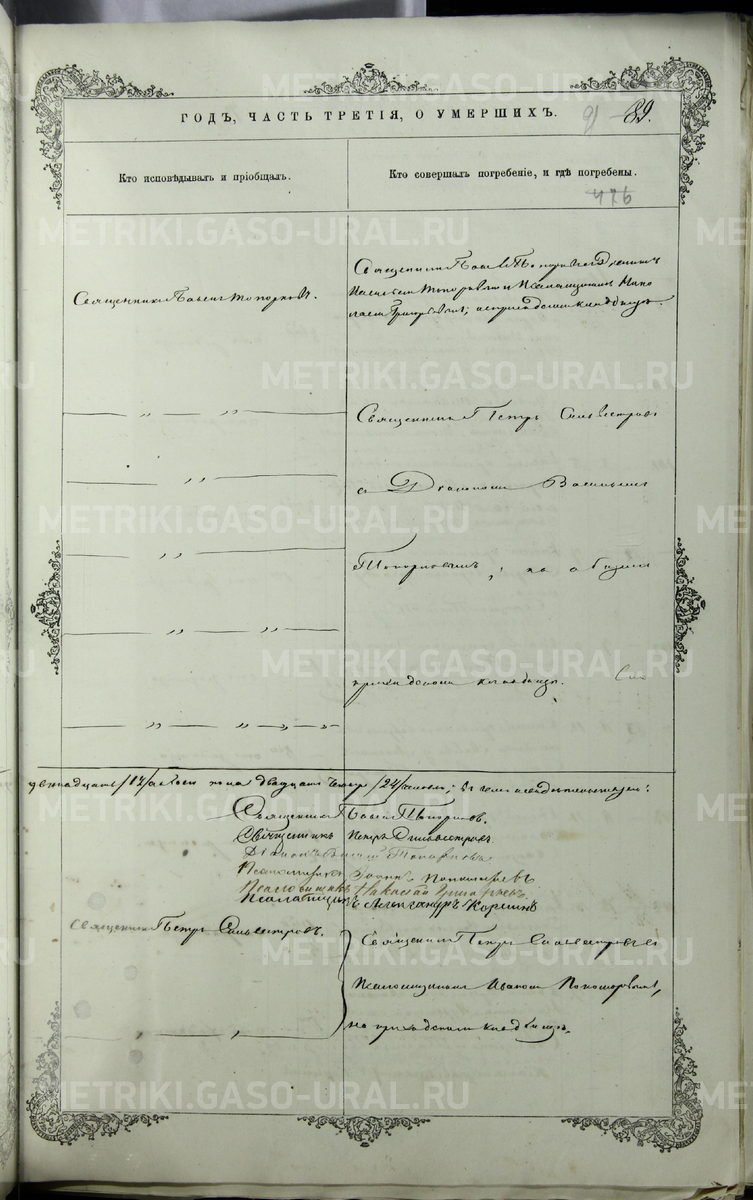 ГОДЪ, ЧАСТЬ ТРЕТІЯ, О УМЕРШИХЪ.
91 89.
Кто исповѣдывалъ и пріобщалъ.
Кто совершалъ погребеніе, и гдѣ погребены.
476
Священникъ Павелъ Топорковъ.
Священникъ Павелъ Топорковъ с Діакономъ
и Псаломщикомъ Нико
лаемъ Григорьевымъ, на приходскомъ кладбищѣ.
— „ — „ —
Священникъ Петръ Сильвестровъ
— „ —
с Діакономъ Василіемъ
— „ —
Топорковымъ, на общемъ
— „ — „ —
приходскомъ кладбищѣ.
— „ — „ — „ —
двѣнадцать /12/ а обоего пола двадцать четыре /24/ человѣка; въ чемъ и свидѣтельствуемъ:
Священникъ Павелъ Топорковъ.
Священникъ Петръ Сильвестровъ.
Діаконъ Василій Топорковъ
Псаломщикъ Іоаннъ Пономаревъ
Псаломщикъ Николай Григорьевъ.
Псаломщикъ Александръ Коринъ
Священникъ Петръ Сильвестровъ.
Священникъ Петръ Сильвестровъ съ
Псаломщикомъ Иваномъ Пономаревымъ,
на приходскомъ кладбищѣ.
— „ —
METRIKI.GASO-URAL.RU